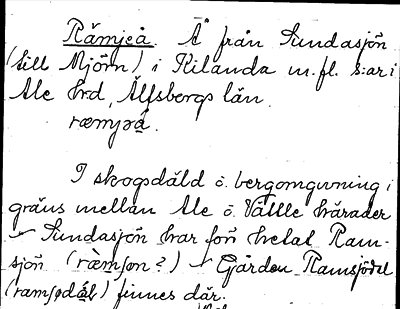 Rämjeå. Å från Sundasjön
(till Mjörn) i Kilanda m. fl. s:ar i
Ale hrd, Älfsborgs län.
ræmjəå.
I skogsdäld o. bergomgivning i
gräns mellan Ale o. Vättle härader
Sundasjön har förr hetat Ram-
sjön (ràmʃøn?) – Gården Ramsjödal
(ramʃødal) finnes där.